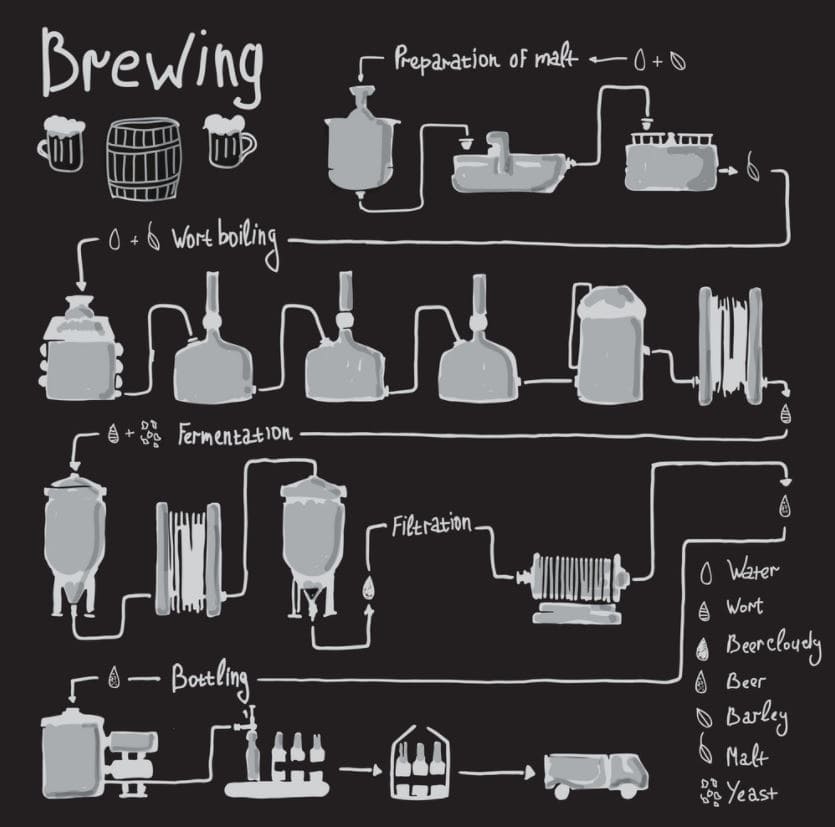 Brewing
Preparation of malt
+
+ Wort boiling
+ Fermentation
Filtration
Water
Wort
Beer cloudy
Beer
Bottling
Barley
Malt
Yeast